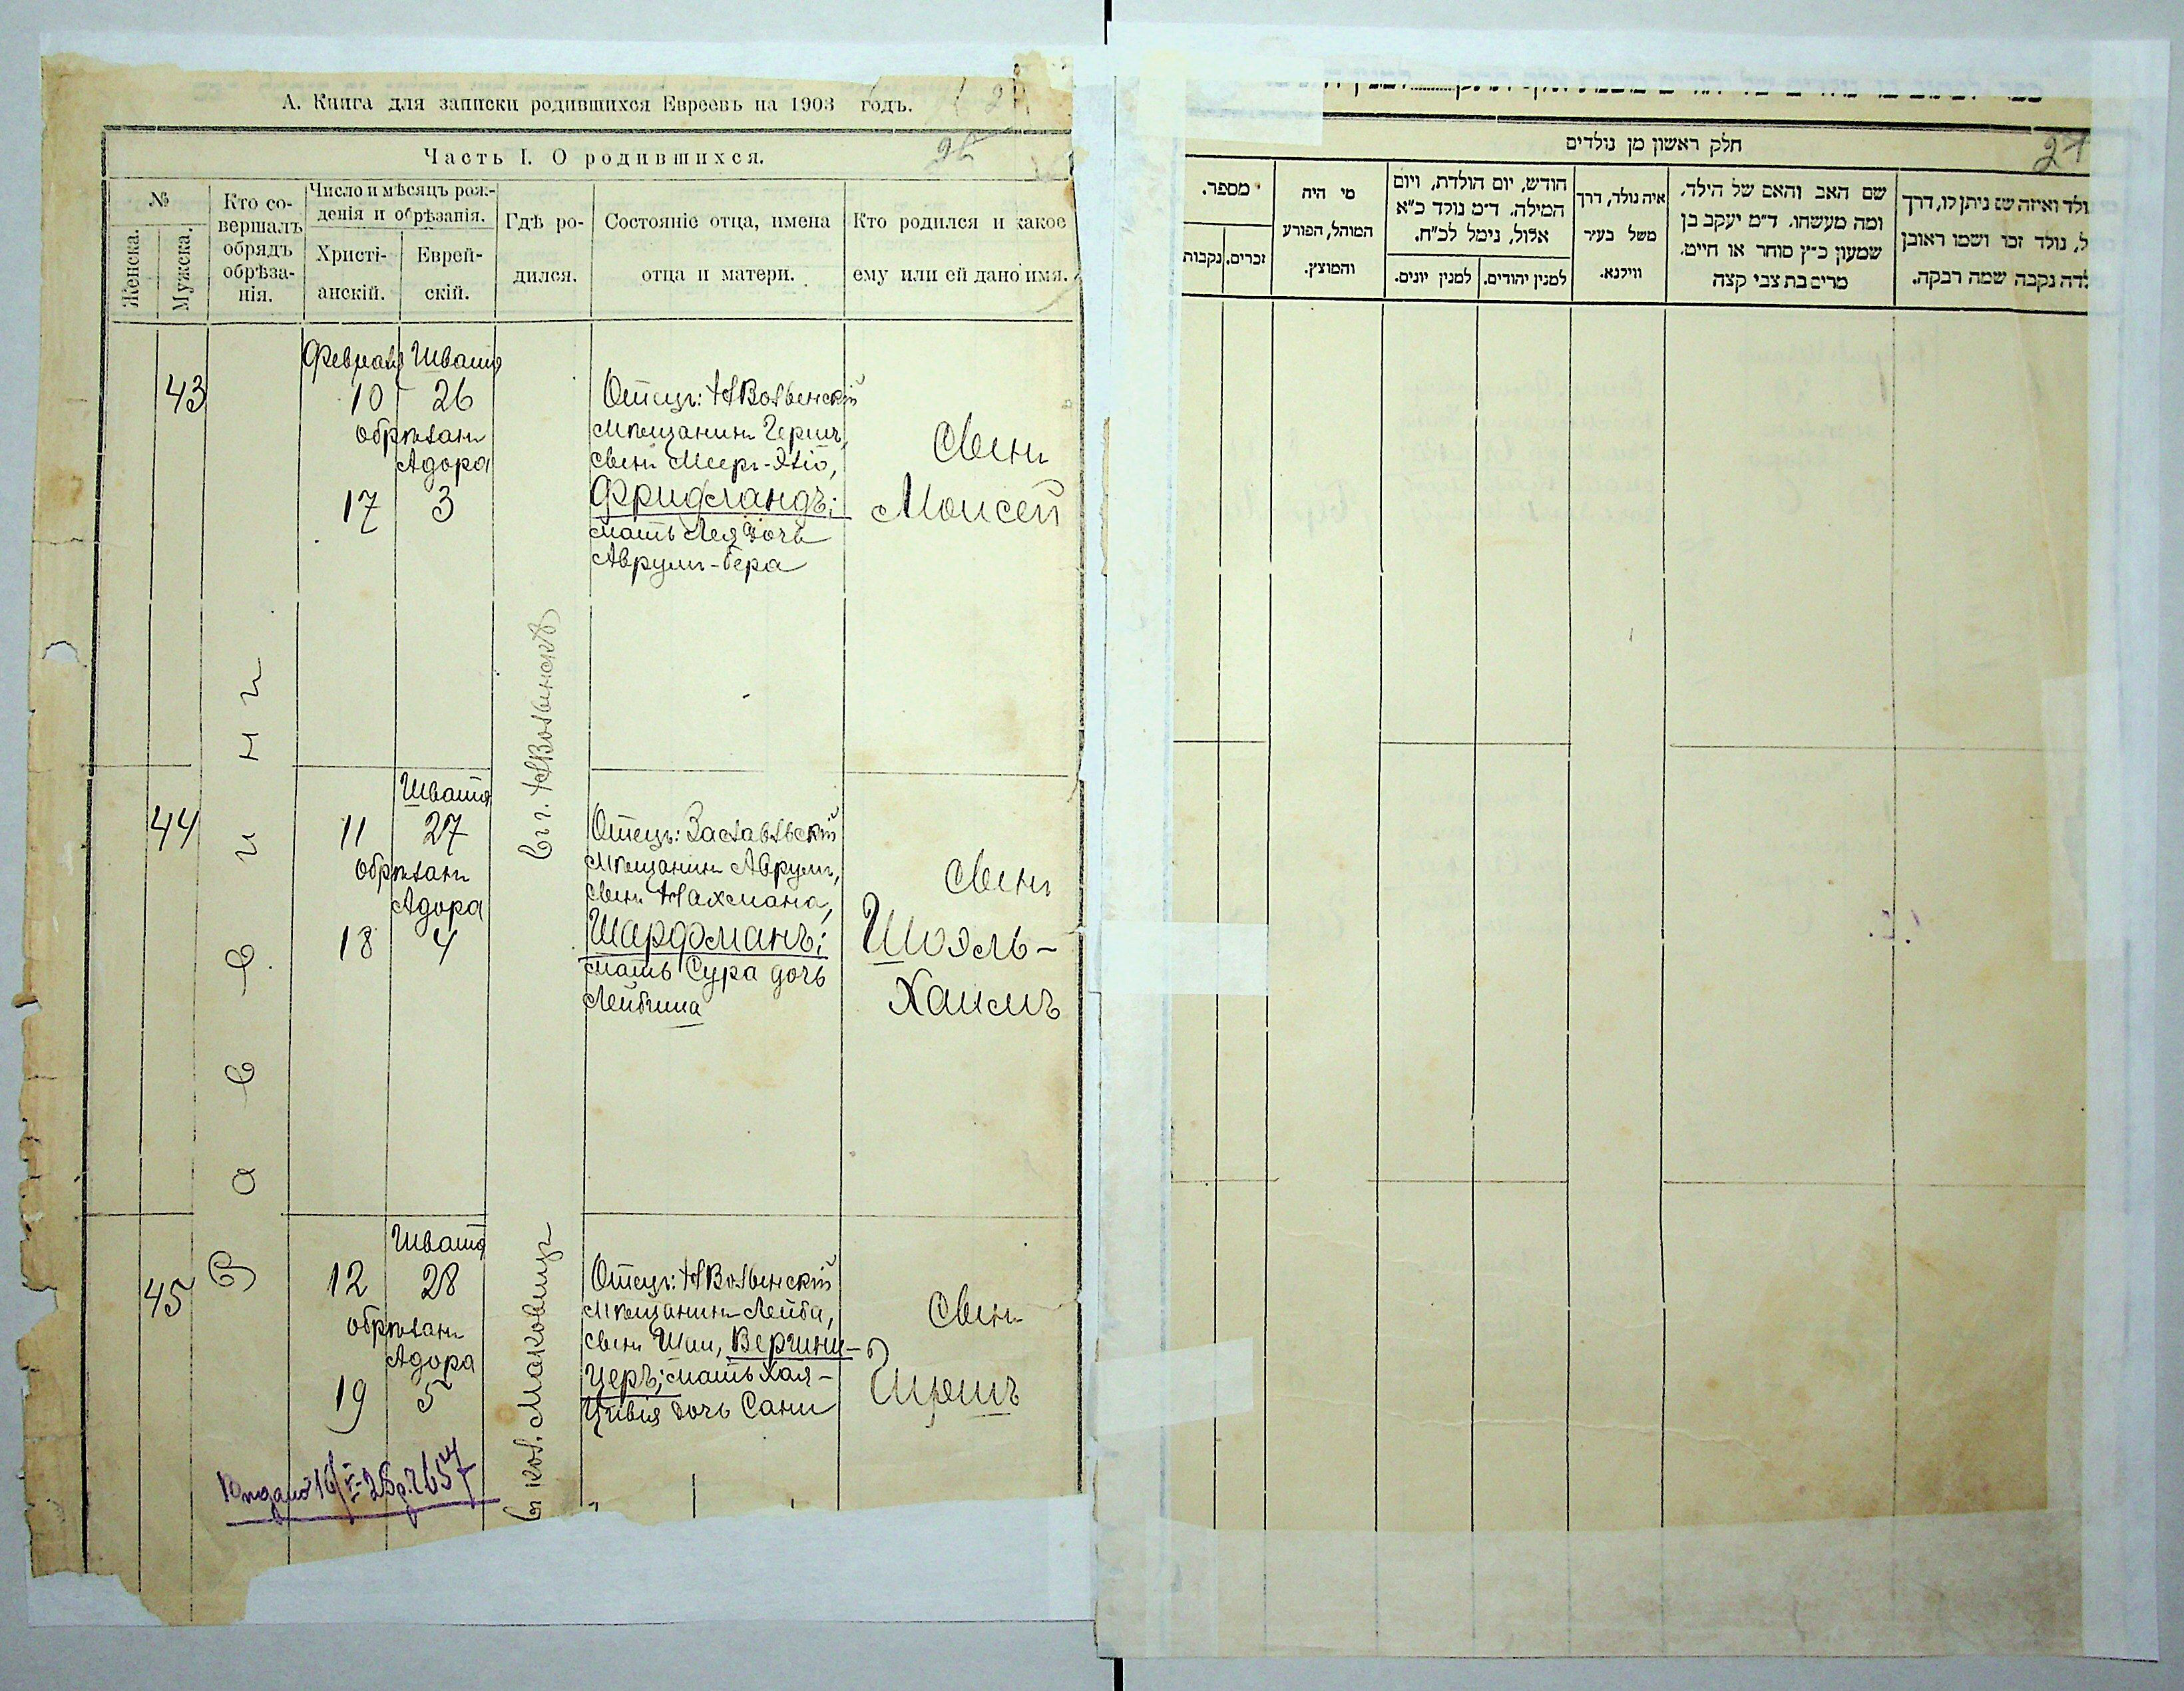 А. Книга для записки родившихся Евреевъ на 1903 годъ.
Часть I. О родившихся.
№
Женска.
Мужска.
Кто со-
вершалъ
обрядъ
обрѣза-
нія.
Число и мѣсяцъ рож-
денія и обрѣзанія.
Христі-
анскій.
Еврей-
скій.
Гдѣ ро-
дился.
Состояніе отца, имена
отца и матери.
Кто родился и какое
ему или ей дано имя.
43
Февраля Швата
10 26
обрѣзанъ
Адора
17 3
Отецъ: НВолынскій
мѣщанинъ Гершъ,
сынъ Меера-
Фридландъ;
мать Лея дочь
Аврумъ-Бера
сынъ
Моисей
въ г. НВолынскѣ
44
Швата
11 27
обрѣзанъ
Адора
18 4
Отецъ: Заславльскій
мѣщанинъ Аврумъ,
сынъ Нахмана,
Шарфманъ;
мать Сура дочь
Лейбиша
сынъ
Шоэль-
Хаимъ
45
Швата
12 28
обрѣзанъ
Адора
19 5
въ кол. Маковицъ
Отецъ: НВолынскій
мѣщанинъ Лейба,
сынъ Шаи, Вергини-
церъ; мать Хая-
Цивія дочь Сани
сынъ
Гиршъ
חלק ראשון מן נולדים
27
מספר.
זכרים.
נקבות
מי היה
המוהל, הפורע
והמוצץ.
חודש, יום הולדת, ויום
המילה. ד״מ נולד כ״א
אלול, נימל לכ״ח.
למנין יהודים.
למנין יונים.
איה נולד, דרך
משל בעיר
ווילנא.
שם האב והאם של הילד,
ומה מעשהו. ד״מ יעקב בן
שמעון כ״ץ סוחר או חייט.
מרים בת צבי קצה
ולד ואיזה שם ניתן לו, דרך
ל, נולד זכר ושמו ראובן
לדה נקבה שמה רבקה.